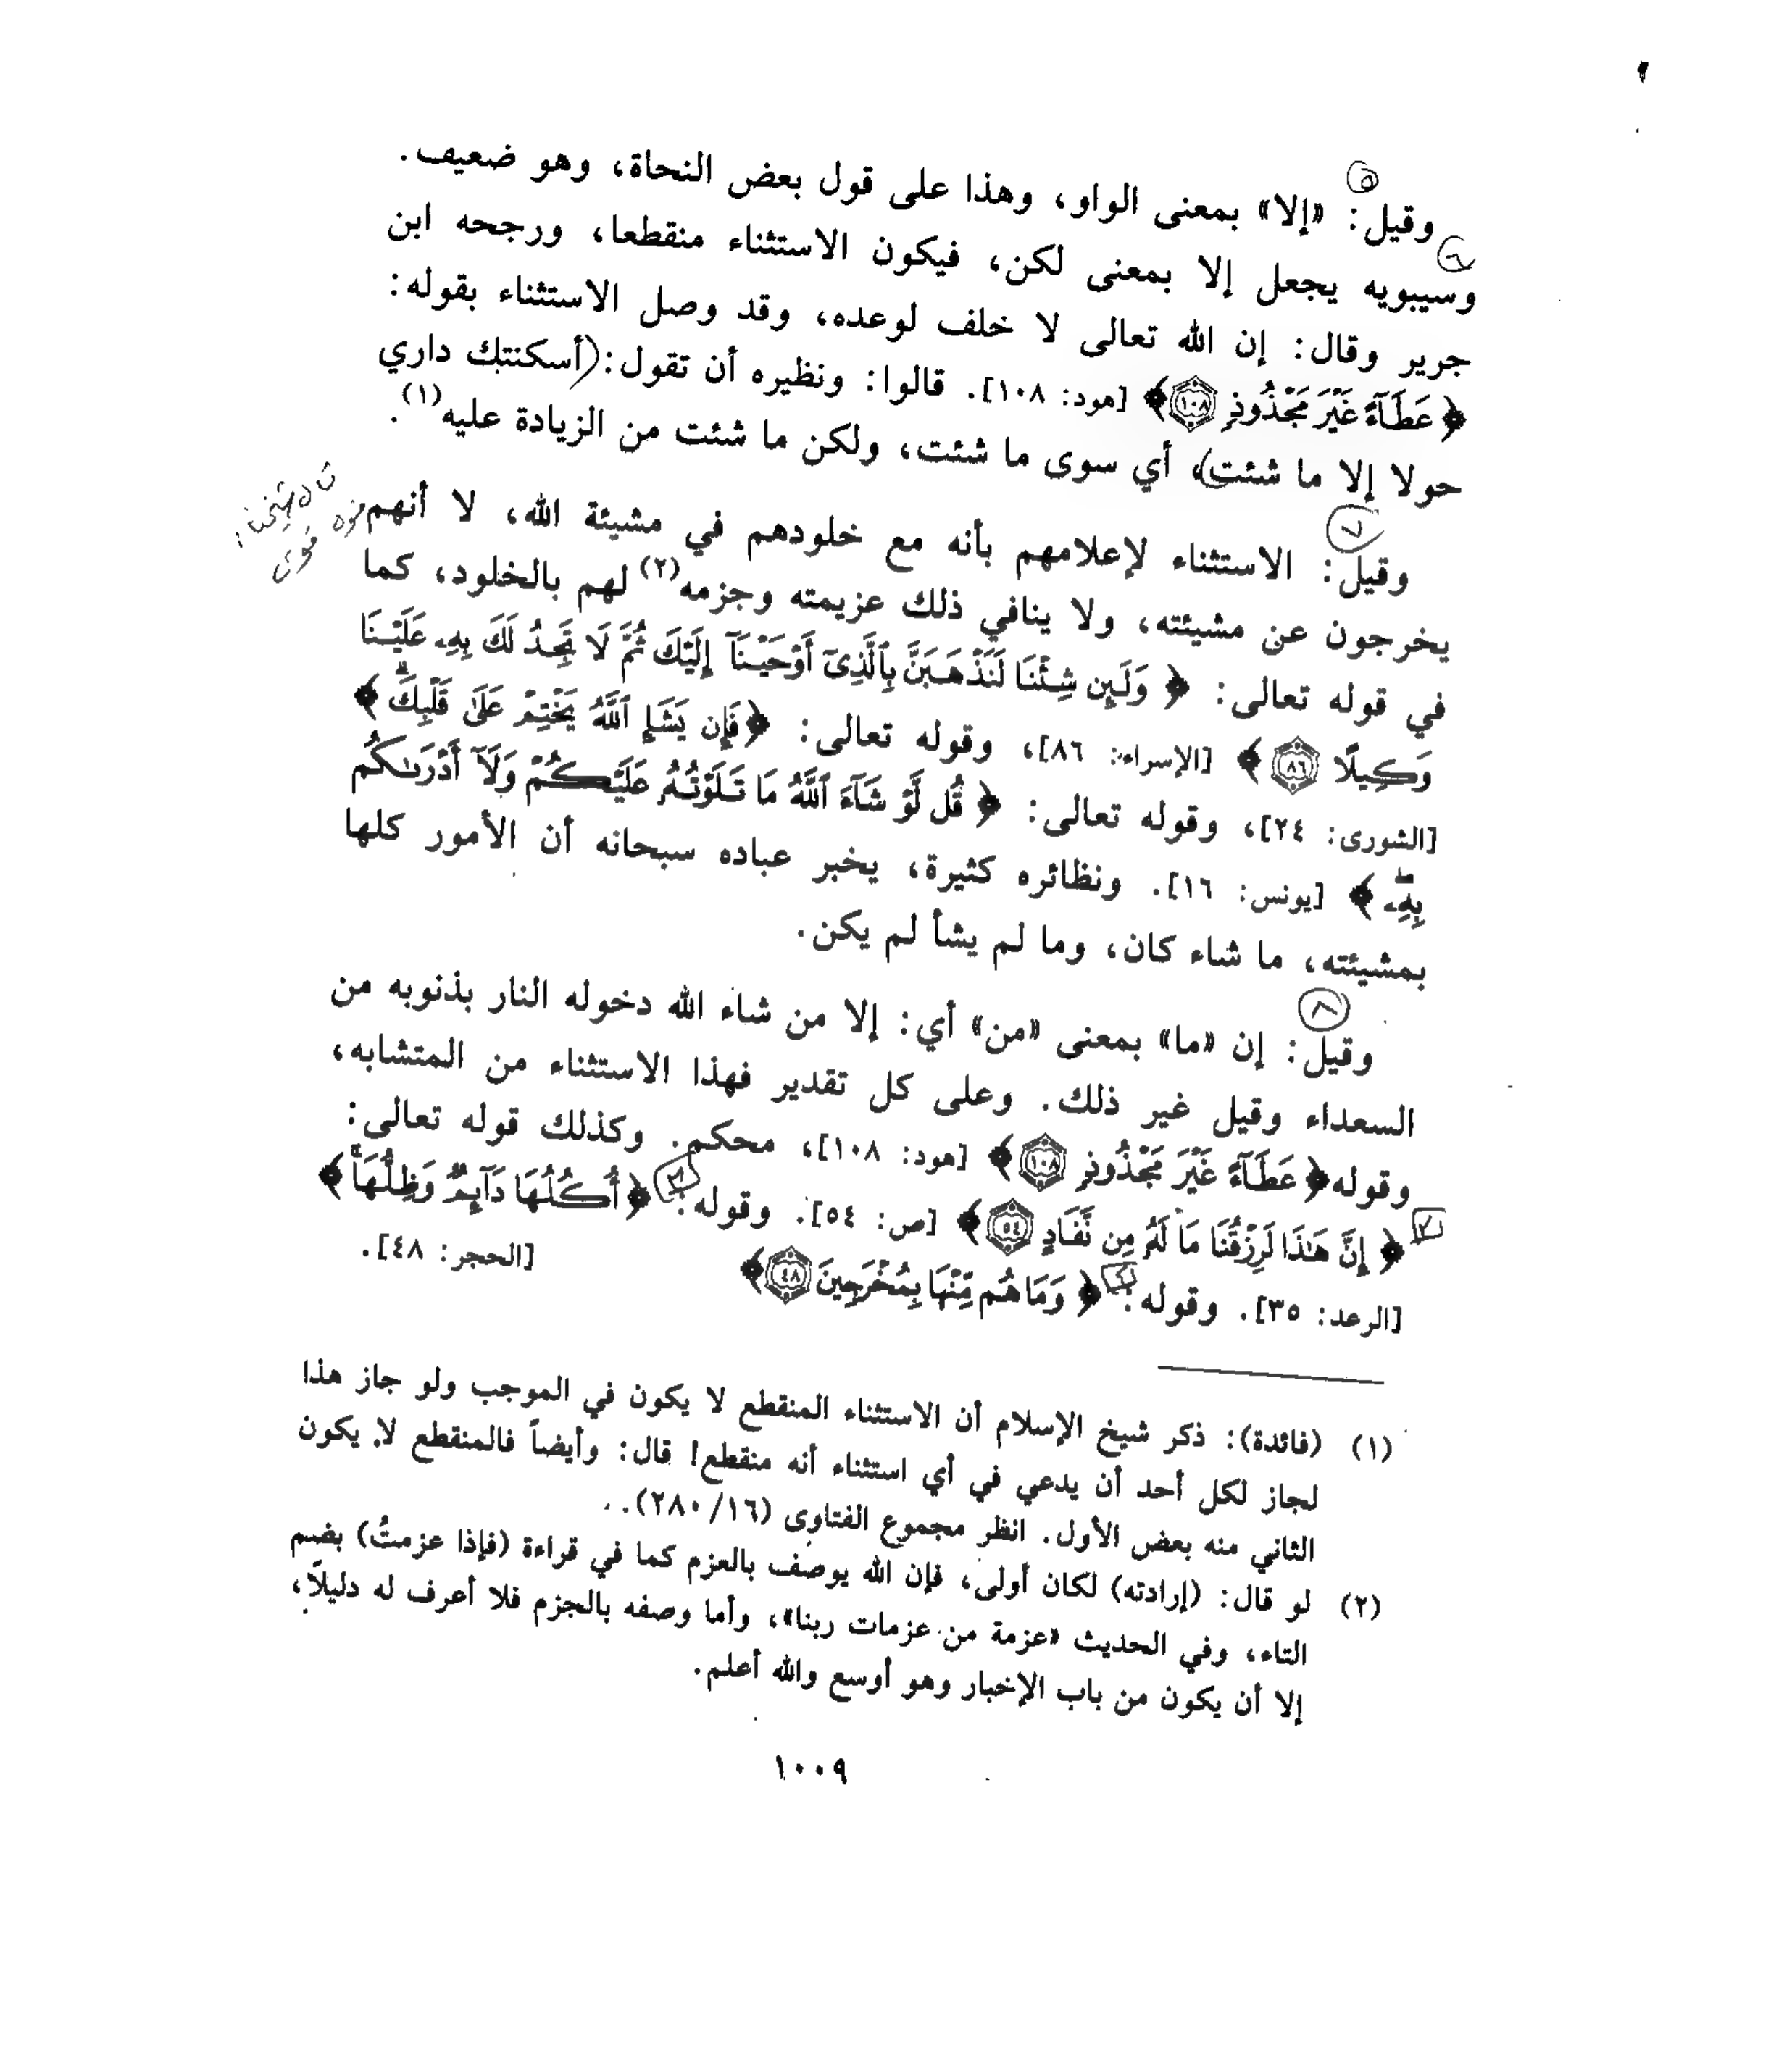 وقيل: «إلا» بمعنى الواو، وهذا على قول بعض النحاة، وهو ضعيف.
وسيبويه يجعل إلا بمعنى لكن، فيكون الاستثناء منقطعا، ورجحه ابن
جرير وقال: إن الله تعالى لا خلف لوعده، وقد وصل الاستثناء بقوله:
﴿عَطَآءً غَيْرَ مَجْذُوذٍ ١٠٨﴾ [هود: ١٠٨]. قالوا: ونظيره أن تقول: (أسكنتك داري
حولا إلا ما شئت)، أي سوى ما شئت، ولكن ما شئت من الزيادة عليه(١).
وقيل: الاستثناء لإعلامهم بأنه مع خلودهم في مشيئة الله، لا أنهم
يخرجون عن مشيئته، ولا ينافي ذلك عزيمته وجزمه(٢) لهم بالخلود، كما
في قوله تعالى: ﴿وَلَئِن شِئْنَا لَنَذْهَبَنَّ بِٱلَّذِىٓ أَوْحَيْنَآ إِلَيْكَ ثُمَّ لَا تَجِدُ لَكَ بِهِۦ عَلَيْنَا
وَكِيلًا ٨٦﴾ [الإسراء: ٨٦]، وقوله تعالى: ﴿فَإِن يَشَإِ ٱللَّهُ يَخْتِمْ عَلَىٰ قَلْبِكَۗ﴾
[الشورى: ٢٤]، وقوله تعالى: ﴿قُل لَّوْ شَآءَ ٱللَّهُ مَا تَلَوْتُهُۥ عَلَيْكُمْ وَلَآ أَدْرَىٰكُم
بِهِۦۖ﴾ [يونس: ١٦]. ونظائره كثيرة، يخبر عباده سبحانه أن الأمور كلها
بمشيئته، ما شاء كان، وما لم يشأ لم يكن.
وقيل: إن «ما» بمعنى «من» أي: إلا من شاء الله دخوله النار بذنوبه من
السعداء وقيل غير ذلك. وعلى كل تقدير فهذا الاستثناء من المتشابه،
وقوله ﴿عَطَآءً غَيْرَ مَجْذُوذٍ ١٠٨﴾ [هود: ١٠٨]، محكم. وكذلك قوله تعالى:
﴿إِنَّ هَٰذَا لَرِزْقُنَا مَا لَهُۥ مِن نَّفَادٍ ٥٤﴾ [ص: ٥٤]. وقوله: ﴿أُكُلُهَا دَآئِمٌ وَظِلُّهَاۚ﴾
[الرعد: ٣٥]. وقوله: ﴿وَمَا هُم مِّنْهَا بِمُخْرَجِينَ ٤٨﴾ [الحجر: ٤٨].
(١) (فائدة): ذكر شيخ الإسلام أن الاستثناء المنقطع لا يكون في الموجب ولو جاز هذا
لجاز لكل أحد أن يدعي في أي استثناء أنه منقطع! قال: وأيضاً فالمنقطع لا يكون
الثاني منه بعض الأول. انظر مجموع الفتاوى (١٦/٢٨٠).
(٢) لو قال: (إرادته) لكان أولى، فإن الله يوصف بالعزم كما في قراءة (فإذا عزمتُ) بضم
التاء، وفي الحديث «عزمة من عزمات ربنا»، وأما وصفه بالجزم فلا أعرف له دليلاً،
إلا أن يكون من باب الإخبار وهو أوسع والله أعلم.
١٠٠٩